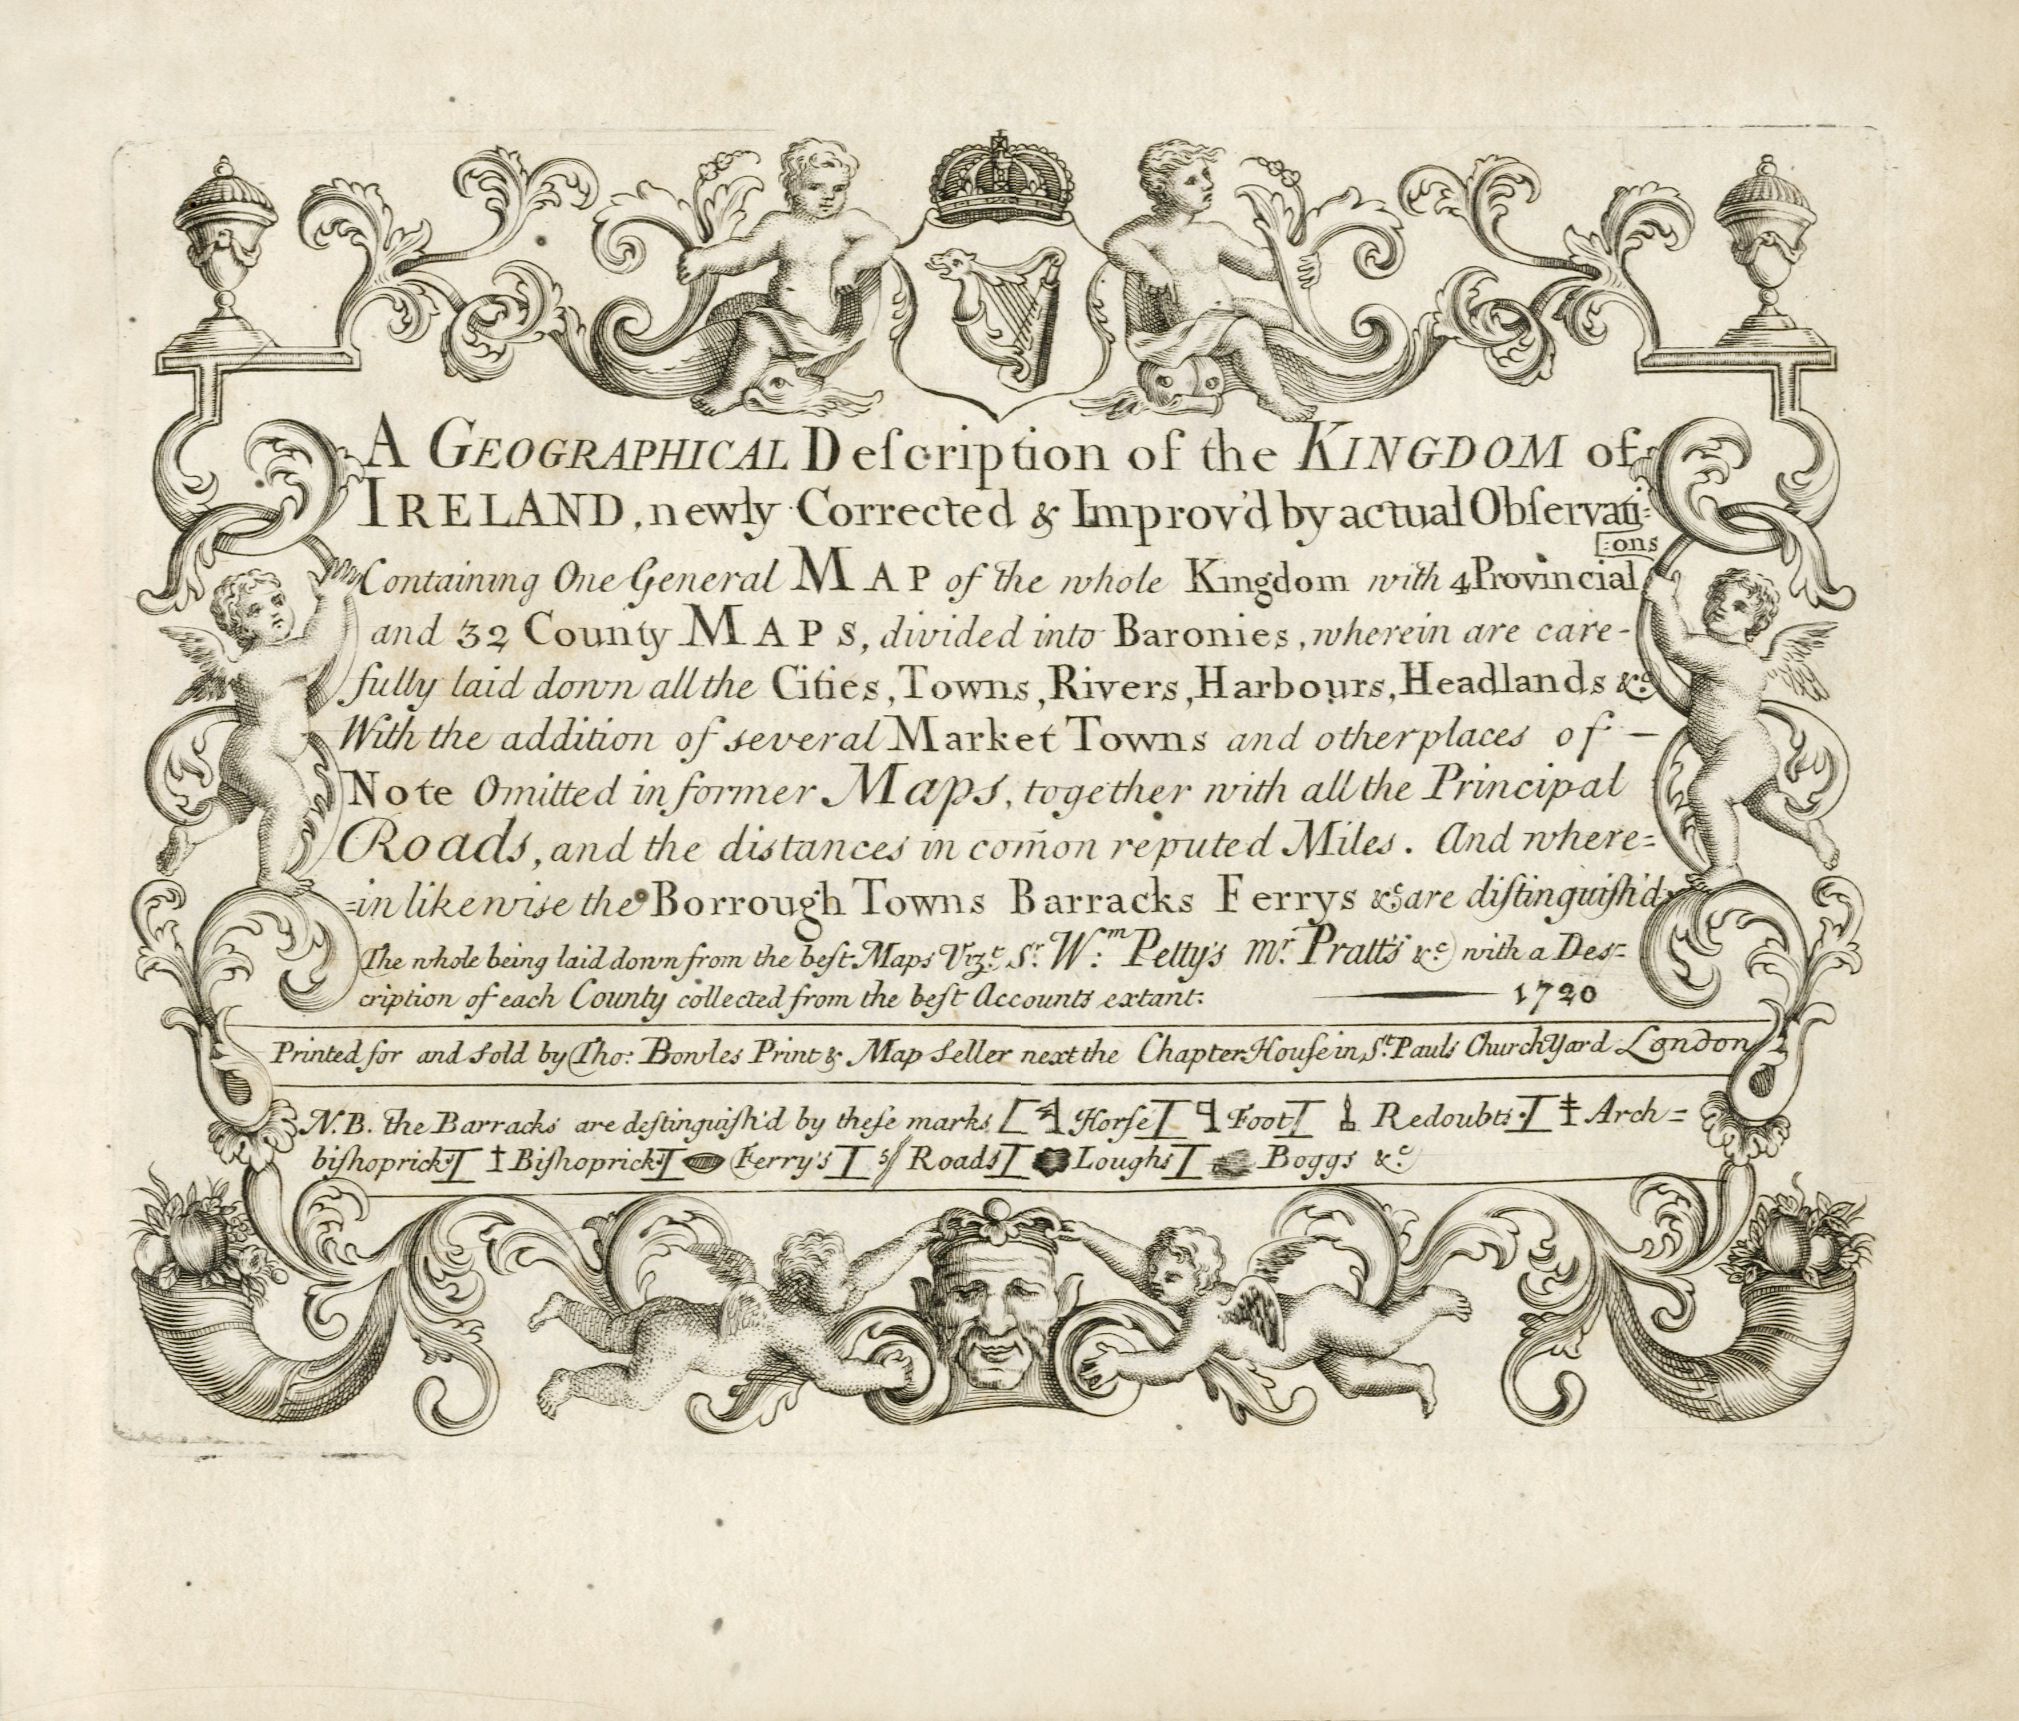 A GEOGRAPHICAL Deſcription of the KINGDOM of
IRELAND, newly Corrected & Improv'd by actual Obſervati:
[:ons
Containing One General MAP of the whole Kingdom with 4 Provincial
and 32 County MAPS, divided into Baronies, wherein are care-
fully laid down all the Cities, Towns, Rivers, Harbours, Headlands &c.
With the addition of several Market Towns and other places of —
Note Omitted in former Maps, together with all the Principal
Roads, and the distances in com̄on reputed Miles. And where=
=in likewise the Borrough Towns Barracks Ferrys &c are diſtinguiſh'd
The whole being laid down from the beſt Maps Vizt. Sr. Wm: Petty's mr. Pratt's &c with a Des=
cription of each County collected from the beſt Accounts extant: —— 1720
Printed for and sold by Tho: Bowles Print & Map seller next the Chapter-Houſe in St. Pauls Church Yard London
N.B. the Barracks are deſtinguiſh'd by theſe marks Horſe Foot Redoubts Arch=
biſhoprick Biſhoprick Ferry's Roads Loughs Boggs &c